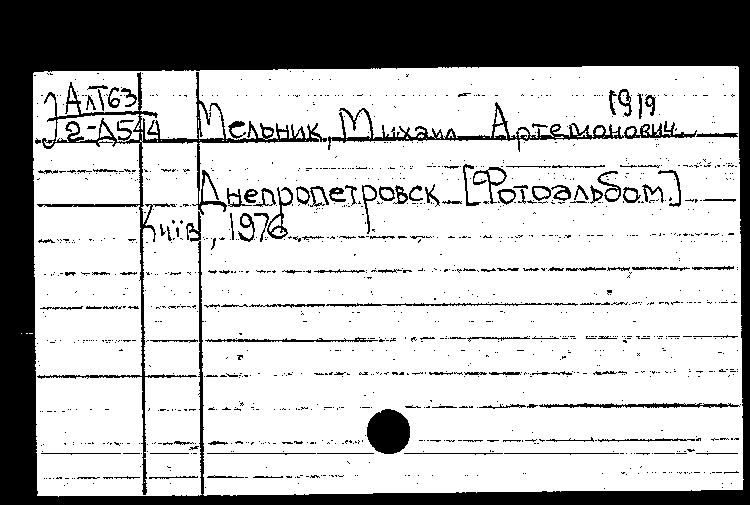 АлТ63
2-Д544
1919
Мельник, Михаил Артемонович
Днепропетровск [Фотоальбом]
Київ, 1976